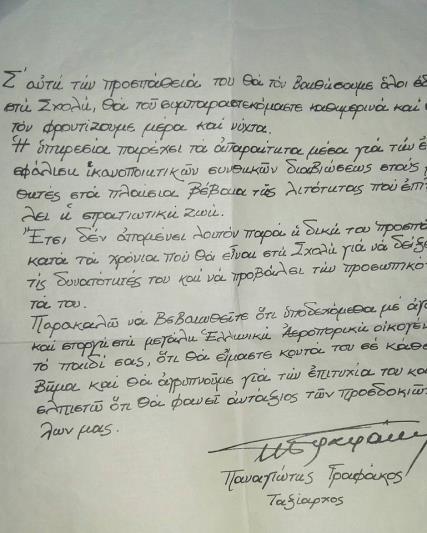 Σ' αὐτή τήν προσπάθειά του θά τόν βοηθήσουμε ὅλοι ἐδ
στή Σχολή, θά τοῦ συμπαραστεκόμαστε καθημερινά καί
τόν φροντίζουμε μέρα καί νύχτα.
Ἡ ὑπηρεσία παρέχει τά ἀπαραίτητα μέσα γιά τήν ἐ
ξφάλιση ἱκανοποιητικῶν συνθηκῶν διαβιώσεως στούς
θητές στά πλαίσια βέβαια τῆς λιτότητας πού ἐπι
λει ἡ στρατιωτική ζωή.
Ἔτσι, δέν ἀπομένει λοιπόν παρά ἡ δική του προσπά
κατά τά χρόνια πού θά εἶναι στή Σχολή γιά νά δείξε
τίς δυνατότητές του καί νά προβάλει τήν προσωπικό
τά του.
Παρακαλῶ νά βεβαιωθεῖτε ὅτι ὑποδεχόμεθα μέ ἀγά
καί στοργή στή μεγάλη Ἑλληνική Ἀεροπορική οἰκογέν
τό παιδί σας, ὅτι θά εἴμαστε κοντά του σέ κάθε
βῆμα καί θά ἀγρυπνοῦμε γιά τήν ἐπιτυχία του κα
ελπιστῶ ὅτι θά φανεῖ ἀντάξιος τῶν προσδοκιῶ
λων μας.
Παναγιώτης Γραφάκος
Ταξίαρχος